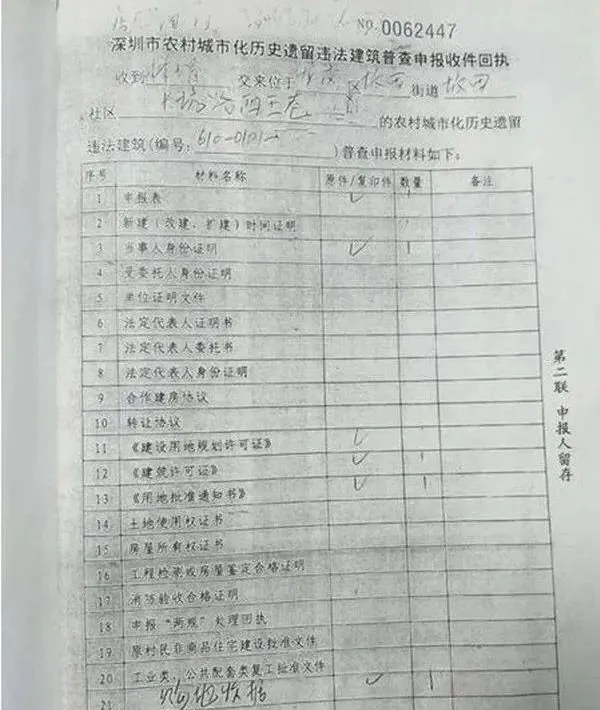 NO. 0062447
深圳市农村城市化历史遗留违法建筑普查申报收件回执
收到 交来位于 区 坂田 街道 坂田
社区 的农村城市化历史遗留
违法建筑(编号: )普查申报材料如下:
序号 材料名称 原件/复印件 数量 备注
1 申报表 ✓ 1
2 新建(改建、扩建)时间证明
3 当事人身份证明 ✓ 1
4 受委托人身份证明
5 单位证明文件
6 法定代表人证明书
7 法定代表人委托书
8 法定代表人身份证明
9 合作建房协议
10 转让协议
11 《建设用地规划许可证》 ✓
12 《建筑许可证》 ✓ 1
13 《用地批准通知书》 ✓ 1
14 土地使用权证书
15 房屋所有权证书
16 工程检测或房屋鉴定合格证明
17 消防验收合格证明
18 申报“两规”处理回执
19 原村民非商品住宅建设批准文件
20 工业类、公共配套类复工批准文件 ✓ 1
21 收据
第二联 申报人留存